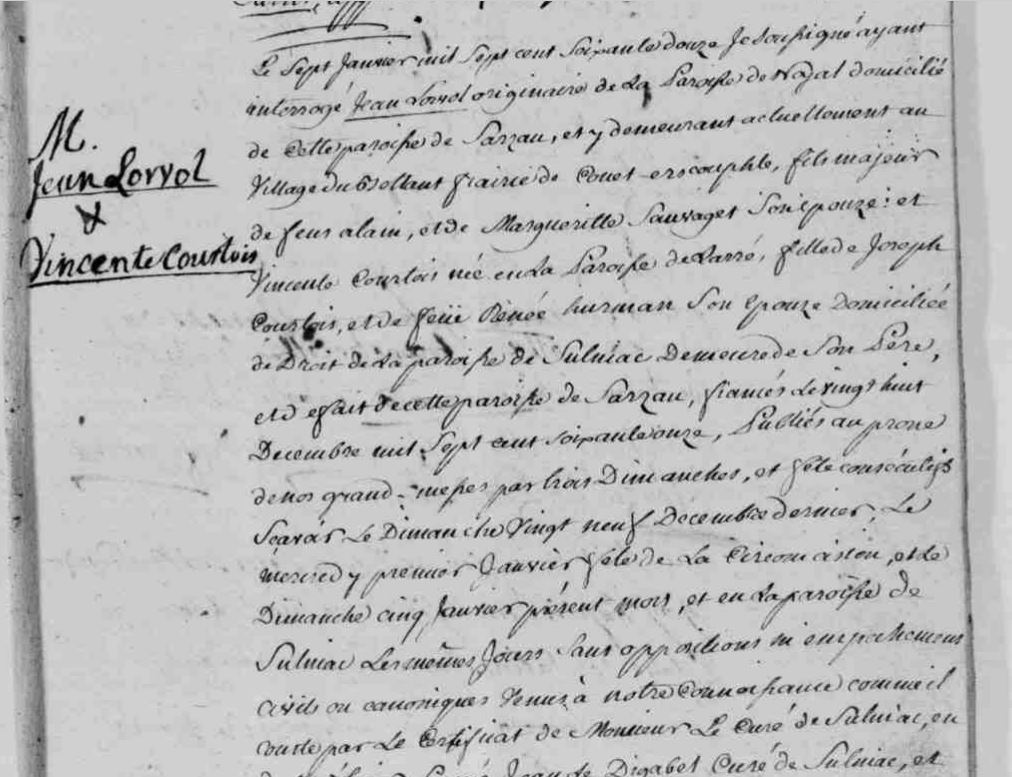 M.
Jean Lorvol
&
Vincente Courtois
Le Sept Janvier mil Sept cent Soixante douze Je Soussigné ayant
interrogé Jean Lorvol originaire de La Paroisse de Noyal domicilié
de Cette paroisse de Sarzau, et y demeurant actuellement au
Village du frairie de Couet fils majeur
de feus alain, et de Marguerille Sauvaget Son epouze: et
Vincente Courtois née en La Paroisse de Larré, fille de Joseph
Courtois, et de feüe Renée hurman Son epouze Domiciliée
de Droit de La paroisse de Sulniac Demeure de Son Père,
et de fait de cette paroisse de Sarzau, fiancés Le vingt huit
Decembre mil Sept cent soixante onze, Publiés au prone
de nos grand-messes par trois Dimanches, et fête consécutifs
Scavoir Le Dimanche Vingt neuf Decembre dernier, Le
mercredy premier Janvier fête de La Circoncision, et Le
Dimanche cinq Janvier présent mois, et en La paroisse de
Sulniac Les mêmes Jours Sans oppositions ni empechemens
civils ou canoniques Venus à notre Connoissance comme il
conste par Le Certificat de Monsieur Le Curé de Sulniac, en
Curé de Sulniac, et